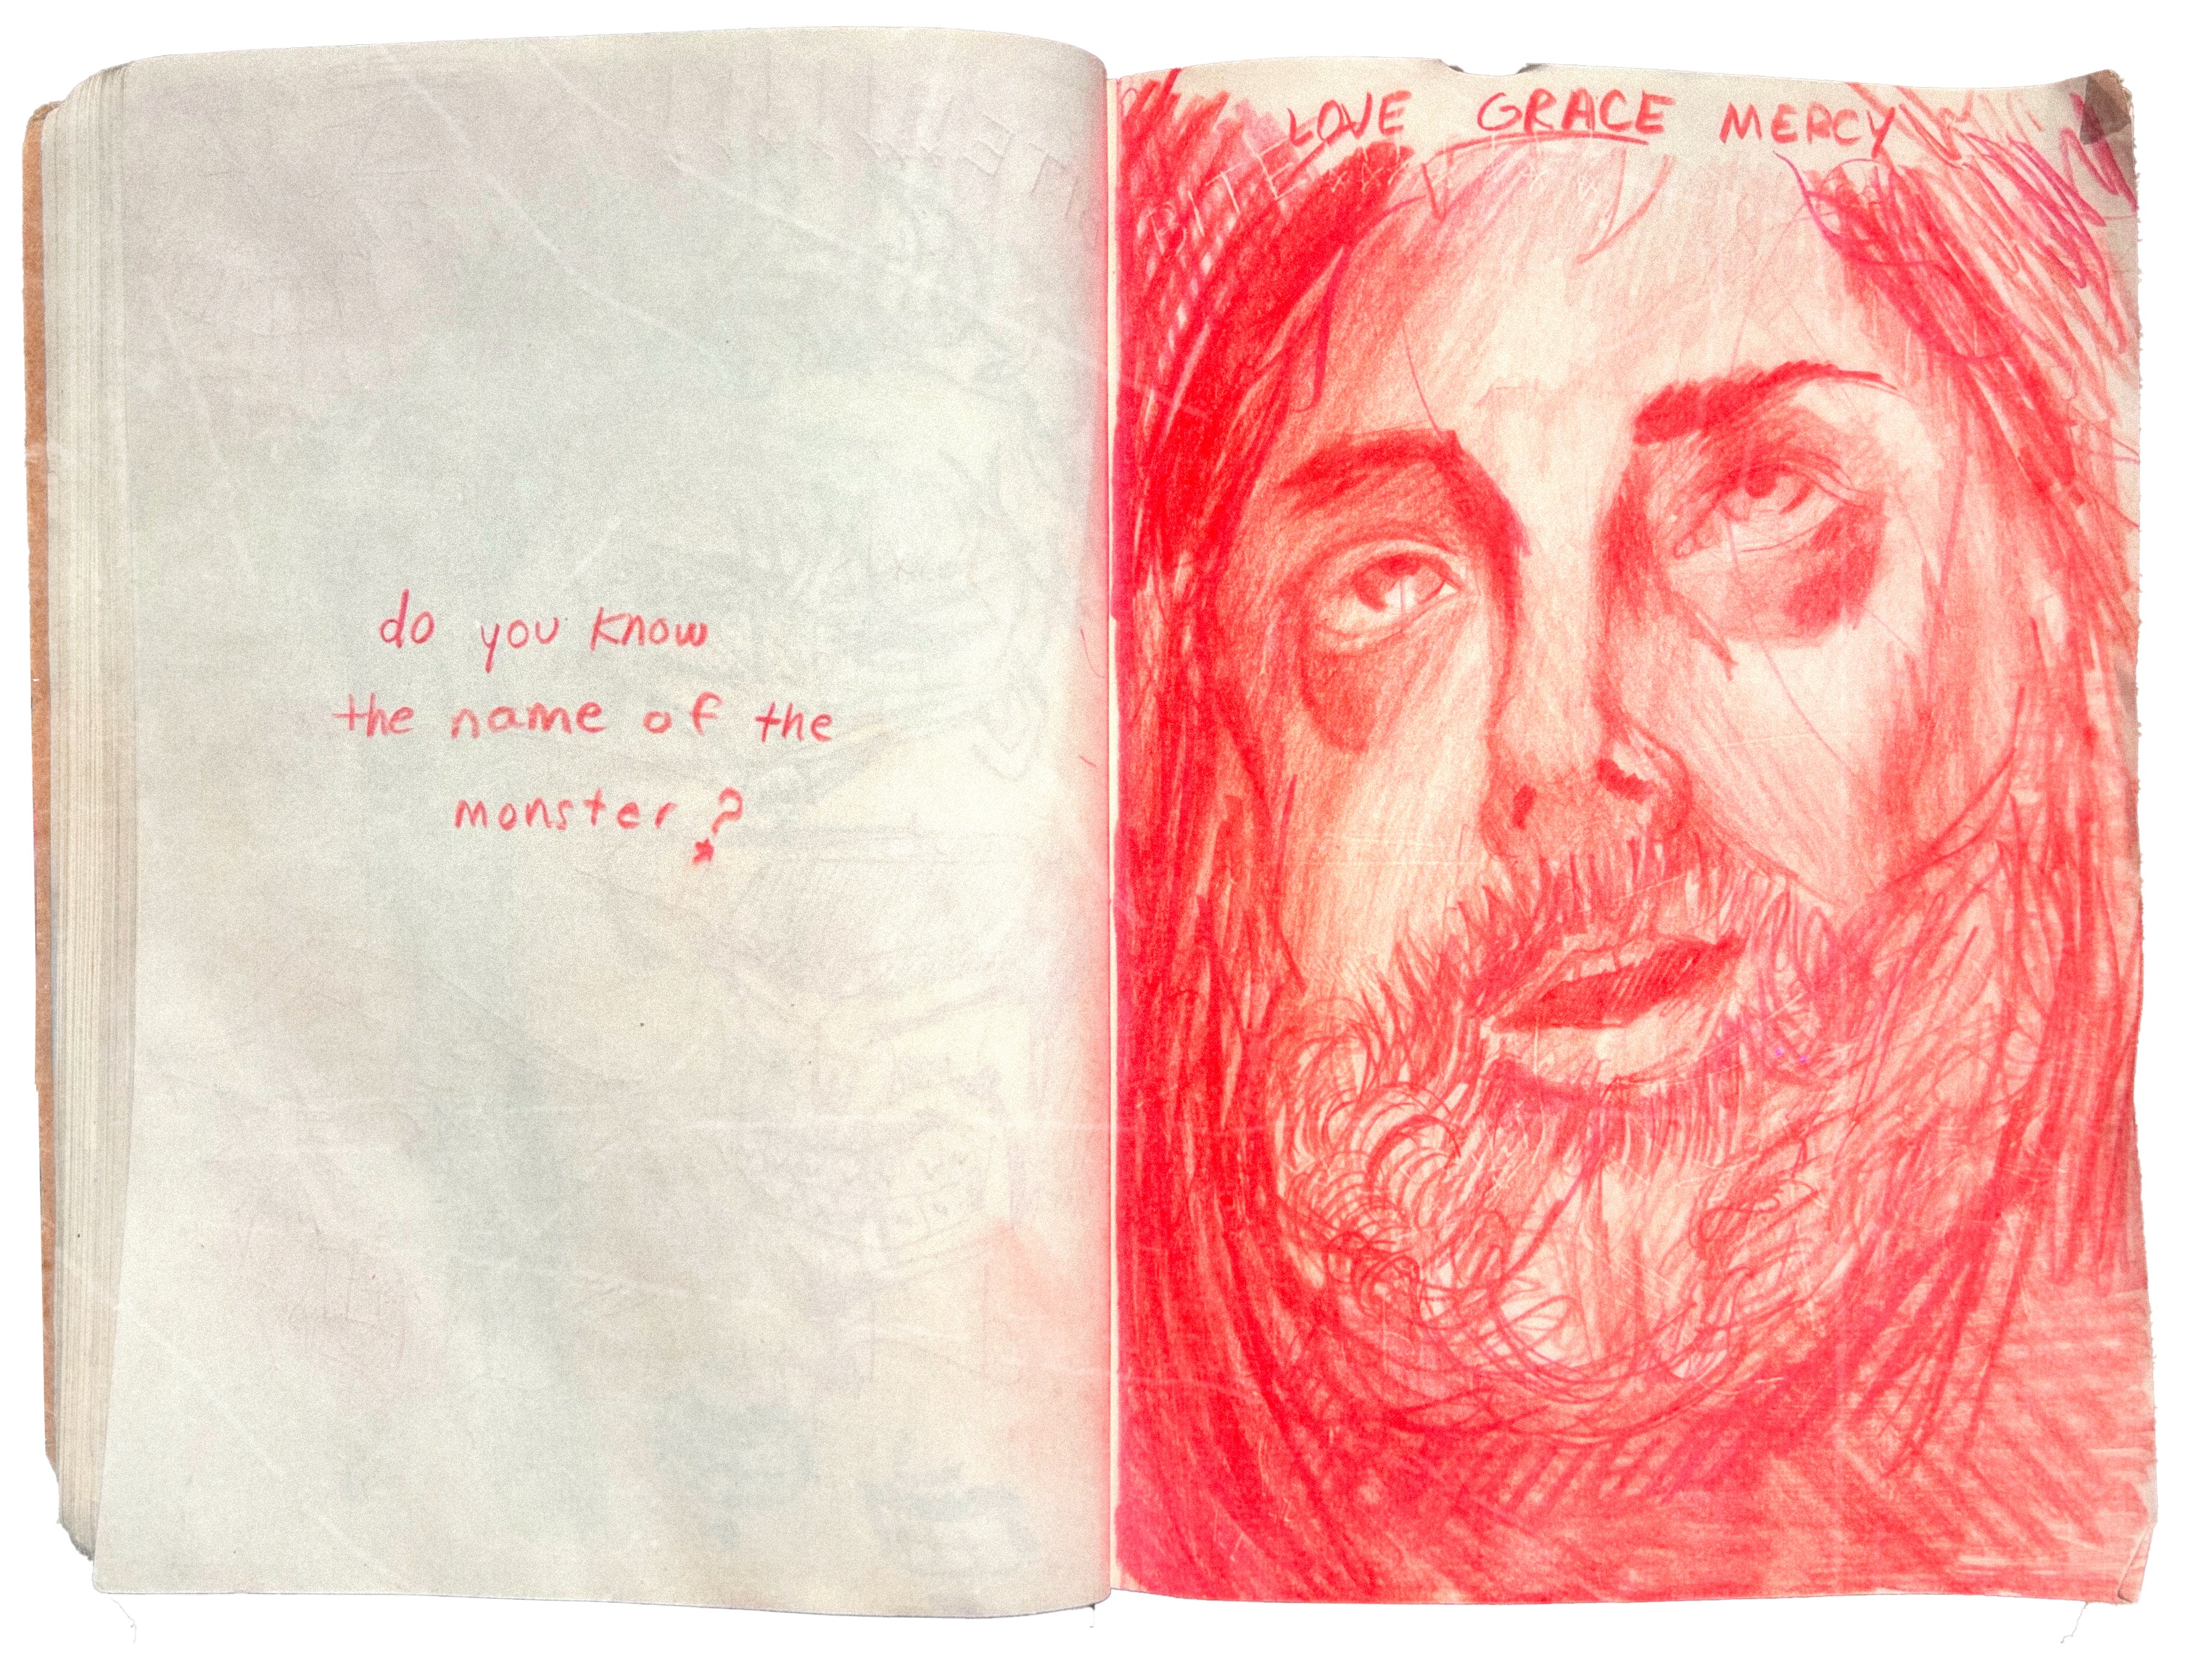 do you know
the name of the
monster?
LOVE GRACE MERCY